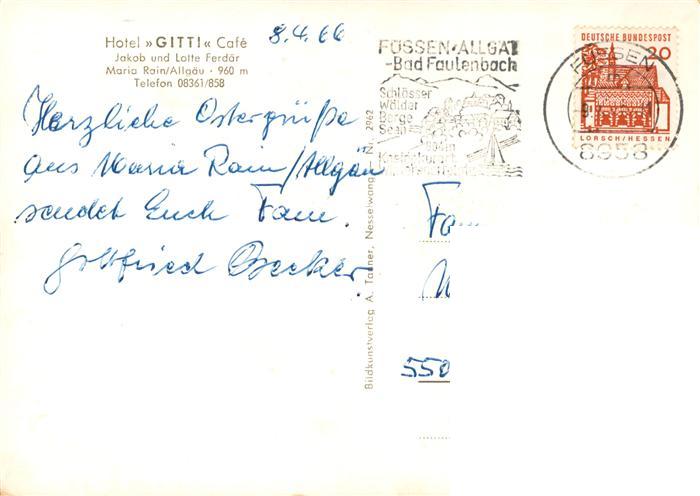 Hotel »GITTI« Café
Jakob und Lotte Ferdär
Maria Rain/Allgäu · 960 m
Telefon 08361/858
8.4.66
Herzliche Ostergrüße
aus Maria Rain/Allgäu
sendet Euch Fam.
Gottfried Becker.
Bildkunstverlag A. Tanner, Nesselwang - Nr. 2962
FÜSSEN·ALLGÄ
-Bad Faulenbach
Schlösser
Wälder
Berge
Seen
Kneippkurort
DEUTSCHE BUNDESPOST
20
LORSCH/HESSEN
FÜSSEN
8958
Fa
550